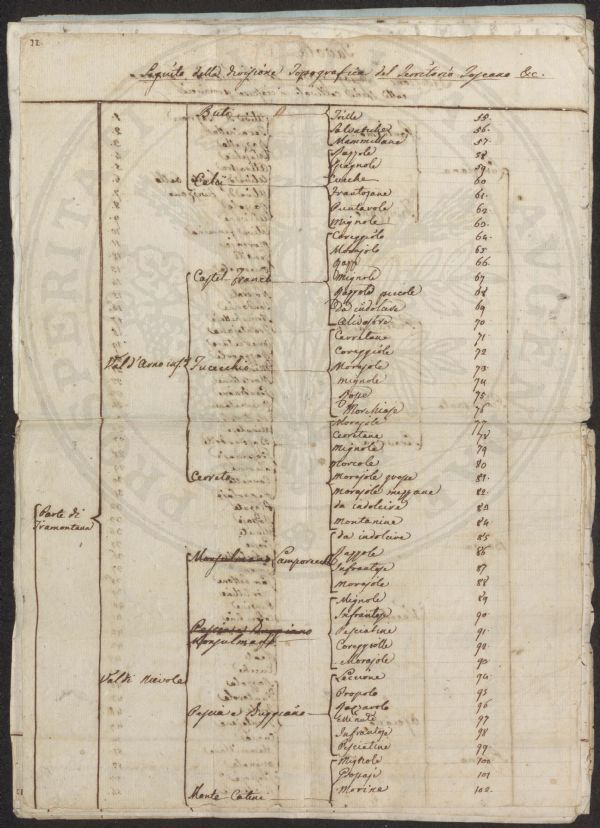 22.
Seguito della divisione Topografica del Territorio Toscano &c.
Buti
Trille 55.
Salvatiche 56.
Mammellane 57.
Razzole 58
Spagnole 59
Calci
Cuche 60
Frantojane 61.
Puntarole 62
Mignole 63.
Coreggiole 64.
Morajole 65
66.
Castel Franco
Mignole 67
Razzole piccole 68
Da indolcire 69
70
Cerretane 71
Coreggiole 72
Val d'Arno inf.e Fucecchio
Morajole 73
Mignole 74
75
Morchiaje 76
Morajole 77
Cerretane 78
Mignole 79
Cerreto
Morcole 80
Morajole grosse 81.
Morajole mezzane 82.
da indolcire 83
Montanine 84
Parte di
Tramontana
da indolcire 85
Monsulmano Camporecci
Razzole 86
Infrantoje 87
Morajole 88
Mignole 89
Infrantoje 90.
Pescia e Buggiano
Pesciatine 91.
Monsulmano
Coreggiole 92.
Morajole 93
Val di Nievole
Leccione 94
Propole 95
Razzarole 96
Pescia e Buggiano
Minute 97
Infrantoje 98
Pesciatine 99
Mignole 100
Grossaje 101
Monte Catini
Morina 102.